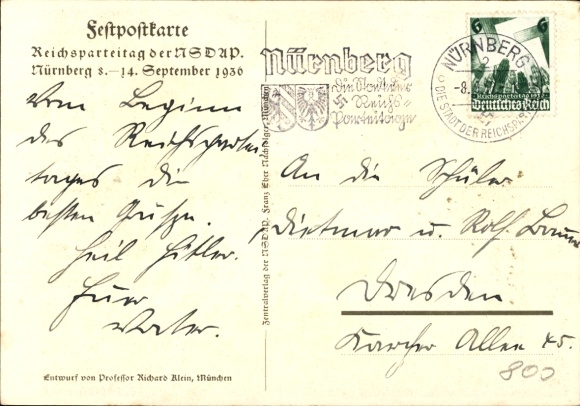 Festpostkarte
Reichsparteitag der NSDAP.
Nürnberg 8.–14. September 1936
Vom Beginn
des Reichspartei
tages die
besten Grüsse.
Heil Hitler!
Euer
Vater.
Entwurf von Professor Richard Klein, München
Zentralverlag der NSDAP. Franz Eher Nachfolger, München
Nürnberg
Die Stadt der
Reichs-
Parteitage
NÜRNBERG
2
-8.
DIE STADT DER REICHSPAR
6 6
Reichsparteitag 1936
Deutsches Reich
An die Schüler
Dietmar u. Rolf Bauer
Dresden
Karcher Allee 45.
800